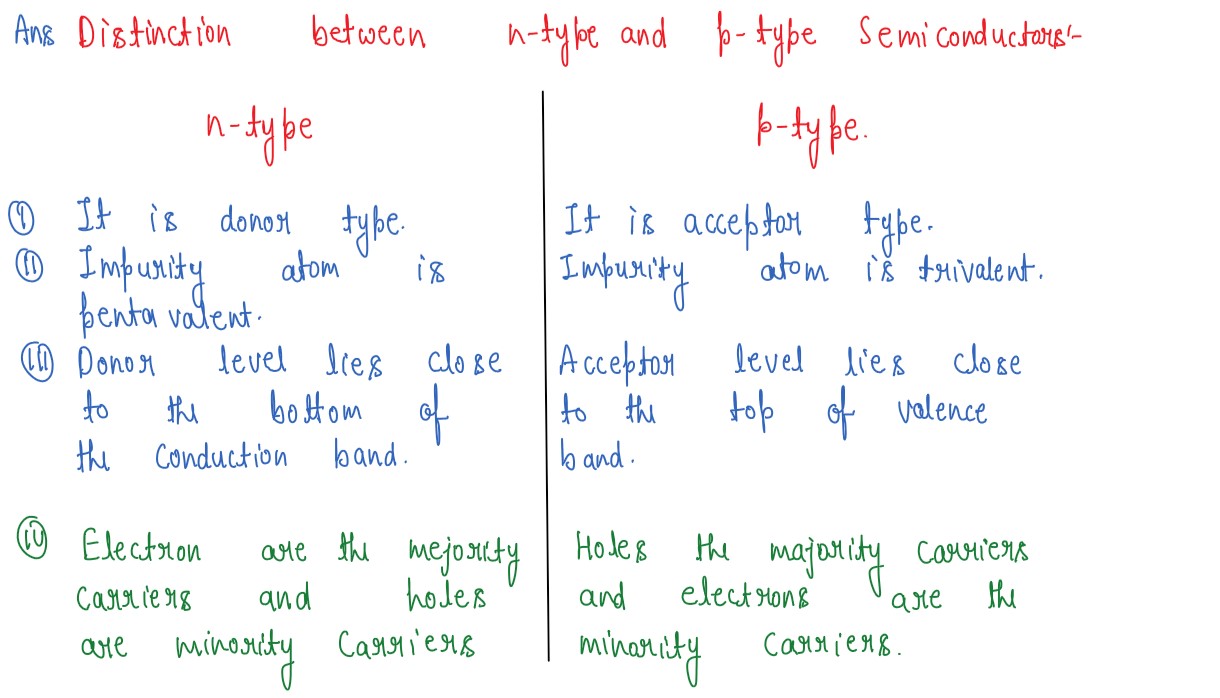 Ans Distinction between n-type and p-type Semiconductors:-
n-type
p-type.
(i) It is donor type.
(ii) Impurity atom is
pentavalent.
(iii) Donor level lies close
to the bottom of
the conduction band.
(iv) Electron are the mejority
carriers and holes
are minority carriers
It is acceptor type.
Impurity atom is trivalent.
Acceptor level lies close
to the top of valence
band.
Holes the majority carriers
and electrons are the
minority carriers.